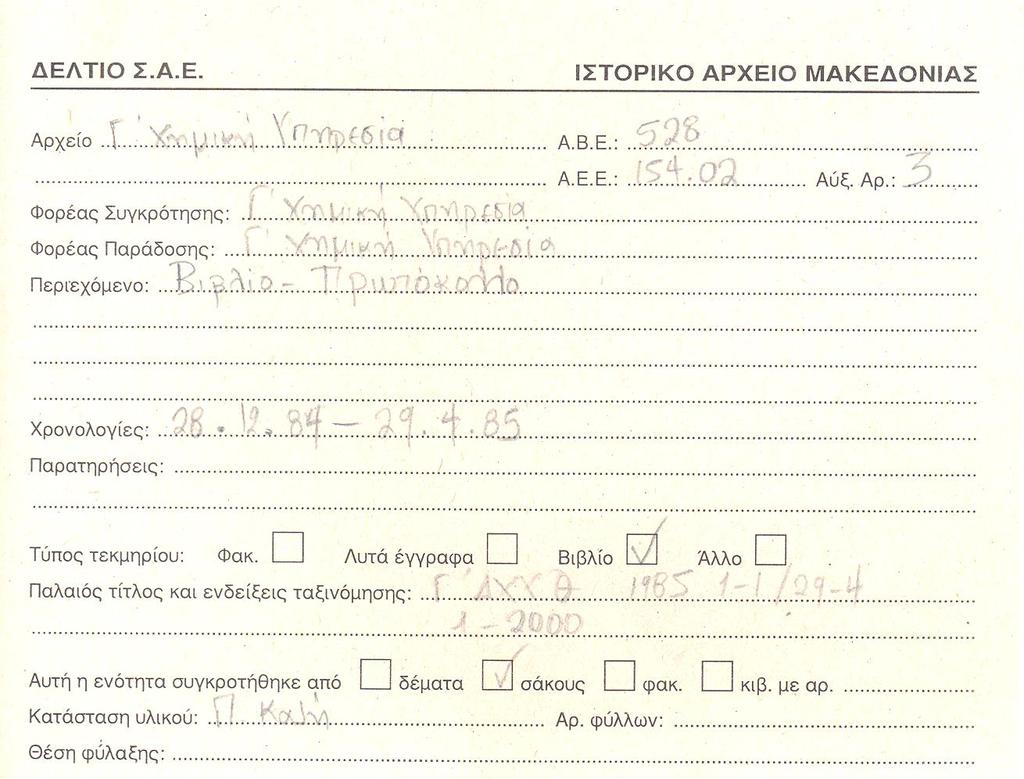 ΔΕΛΤΙΟ Σ.Α.Ε. ΙΣΤΟΡΙΚΟ ΑΡΧΕΙΟ ΜΑΚΕΔΟΝΙΑΣ
Αρχείο Γ' Χημική Υπηρεσία Α.Β.Ε.: 528
Α.Ε.Ε.: 154.02 Αύξ. Αρ.: 3
Φορέας Συγκρότησης: Γ' Χημική Υπηρεσία
Φορέας Παράδοσης: Γ' Χημική Υπηρεσία
Περιεχόμενο: Βιβλίο - Πρωτόκολλο
Χρονολογίες: 28.12.84 - 29.4.85
Παρατηρήσεις:
Τύπος τεκμηρίου: Φακ. Λυτά έγγραφα Βιβλίο Άλλο
Παλαιός τίτλος και ενδείξεις ταξινόμησης: Γ' ΔΧΥ Θ 1985 1-1/29-4
1-2000
Αυτή η ενότητα συγκροτήθηκε από δέματα σάκους φακ. κιβ. με αρ.
Κατάσταση υλικού: Π. Καλή Αρ. φύλλων:
Θέση φύλαξης: